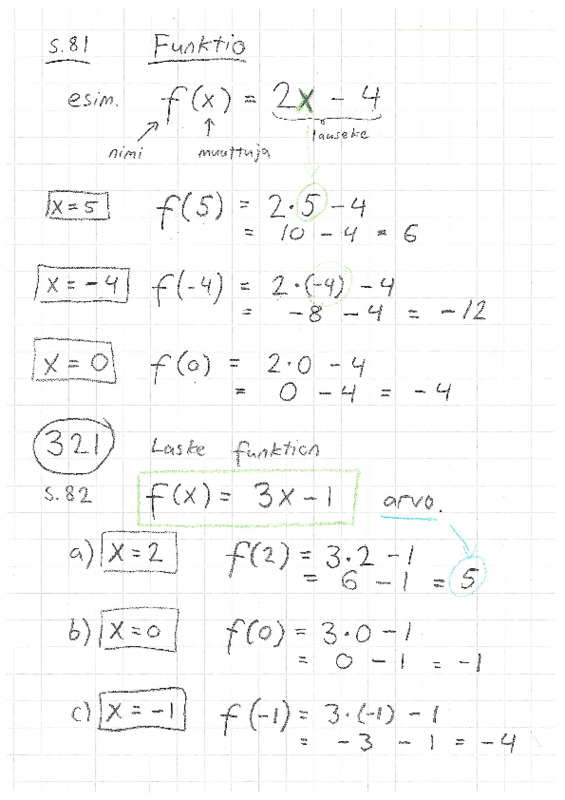 s.81 Funktio
esim. f(x) = 2x - 4
lauseke
nimi muuttuja
x = 5 f(5) = 2·5 - 4
= 10 - 4 = 6
x = -4 f(-4) = 2·(-4) - 4
= -8 - 4 = -12
x = 0 f(0) = 2·0 - 4
= 0 - 4 = -4
321 Laske funktion
s.82 f(x) = 3x - 1 arvo.
a) x = 2 f(2) = 3·2 - 1
= 6 - 1 = 5
b) x = 0 f(0) = 3·0 - 1
= 0 - 1 = -1
c) x = -1 f(-1) = 3·(-1) - 1
= -3 - 1 = -4